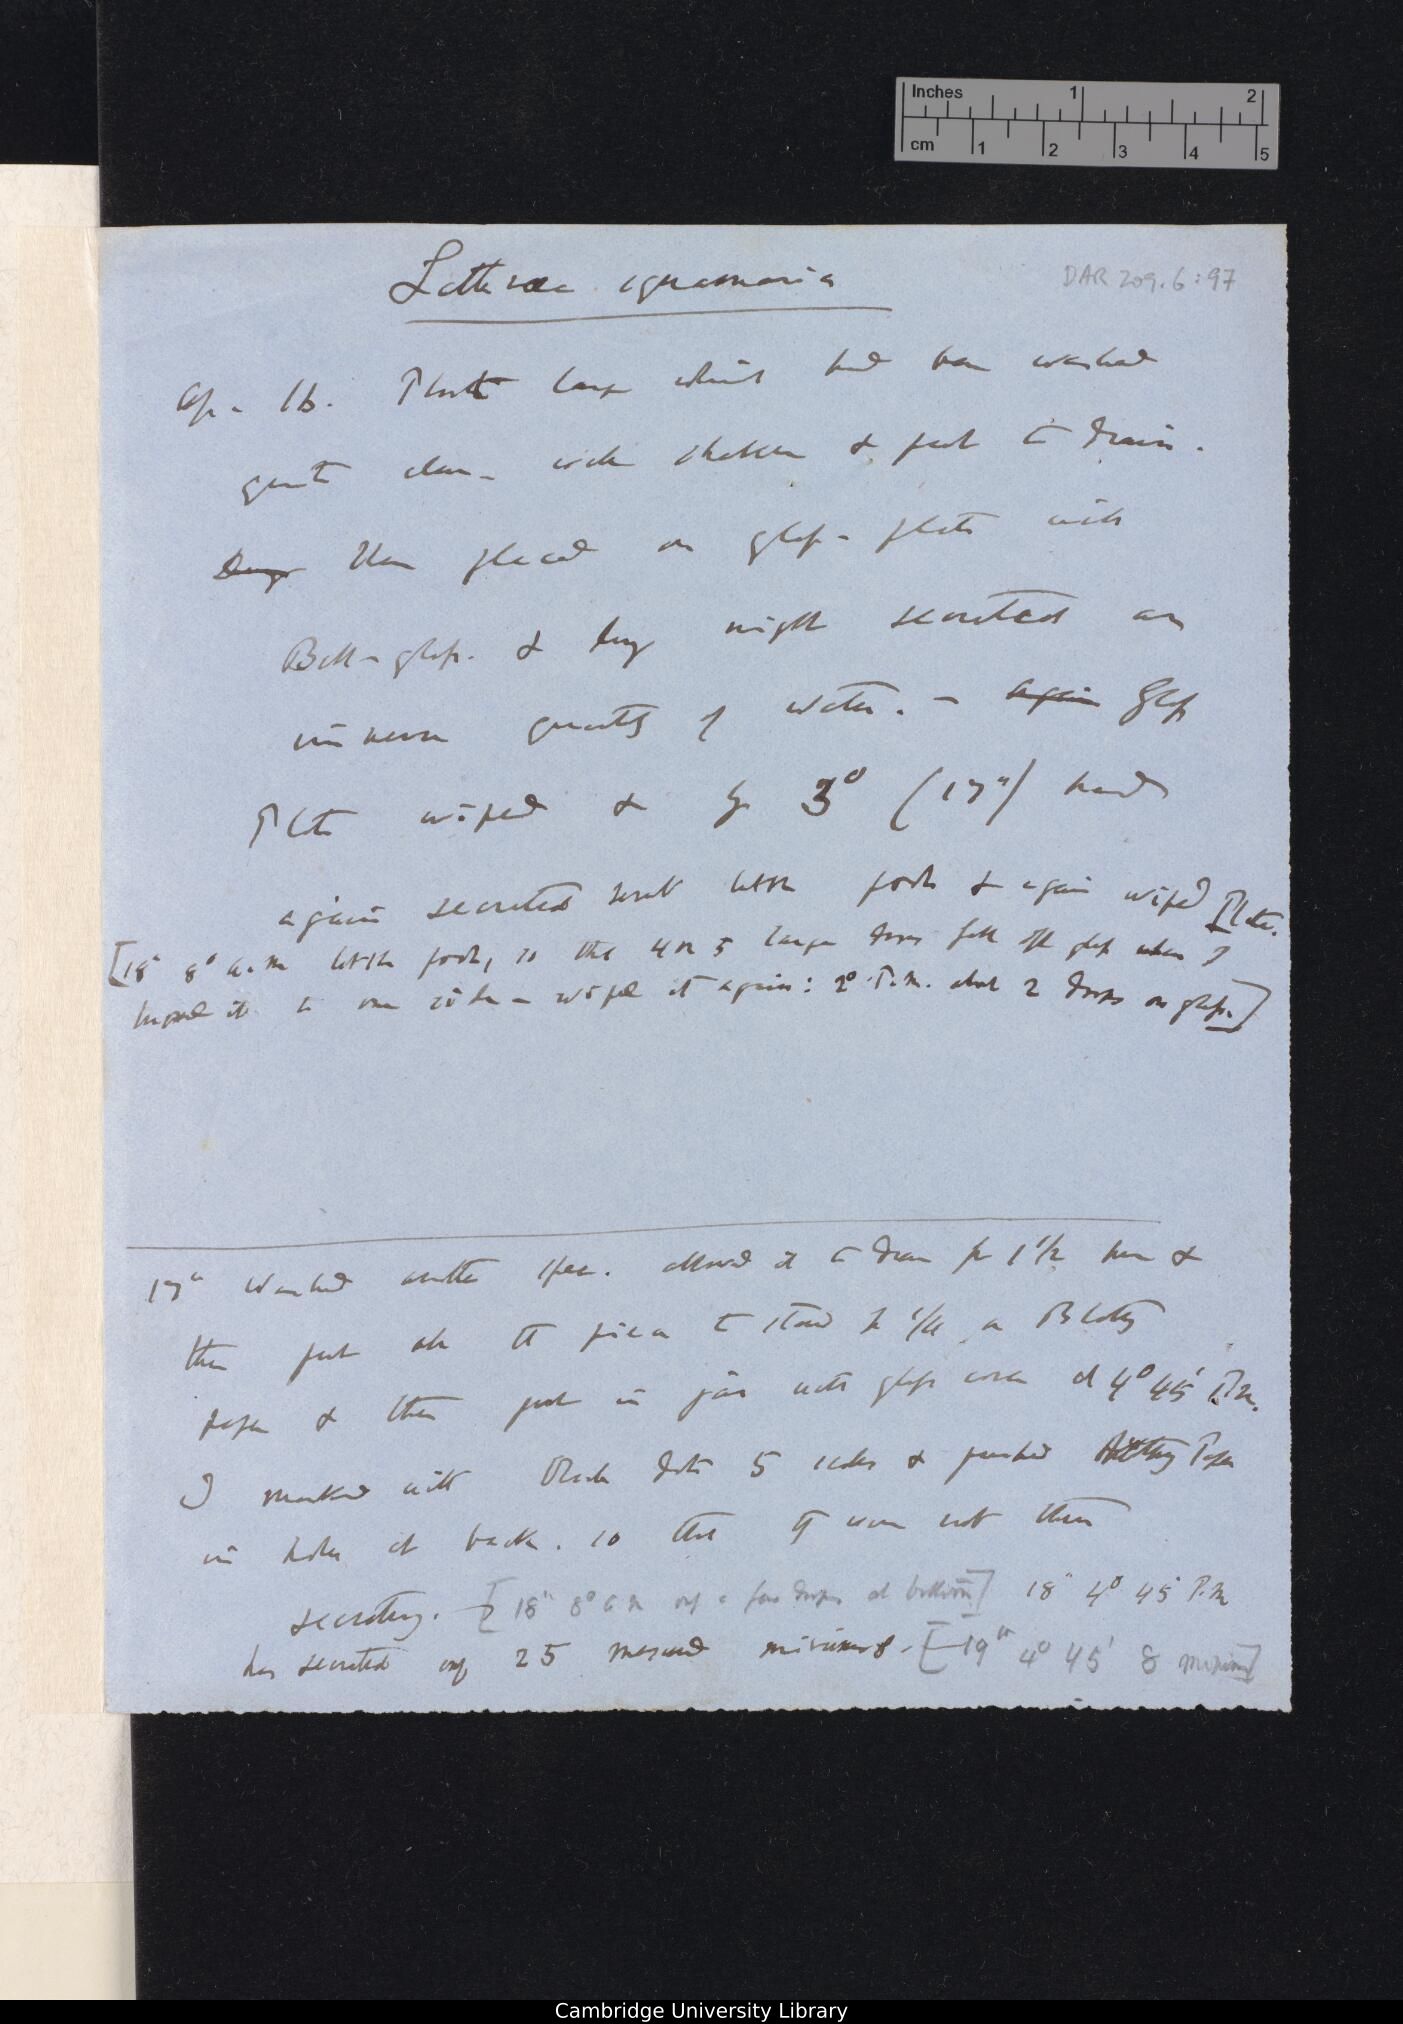 Inches 1 2
cm 1 2 3 4 5
DAR 209.6:97
Lathraea squamaria
Ap. 16. Plant large which had been washed
quite clean with shaken & put to drain.
then placed on glass-plate with
Bell-glass. & during night secreted an
immense quantity of water. — again Glass
Plate wiped & by 3° (17th) had
again secreted little pools & again wiped Plate.
[18th 8° a.m. little pools, so that 4 or 5 large drops fell off glass when I
moved it to one side — wiped it again: 2° P.m. about 2 drops on glass.]
17th Washed another spec. allowed it to drain for 1 1/2 hour &
then put all the pieces to stand for 1/4 on Blotting
paper & then put in jar with glass cover at 4° 45' P.m.
I marked with Black dots 5 scales & pushed Blotting Paper
in holes at back. so that they were not then
secreting. [18th 8° a m only a few drops at bottom] 18th 4° 45' P.m
has secreted only 25 measured minims. [19th 4° 45' 8 minims]
Cambridge University Library